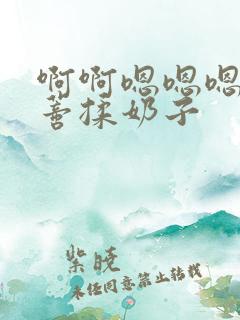 啊啊嗯嗯嗯
善揉奶子
紫晓
未经同意禁止转载